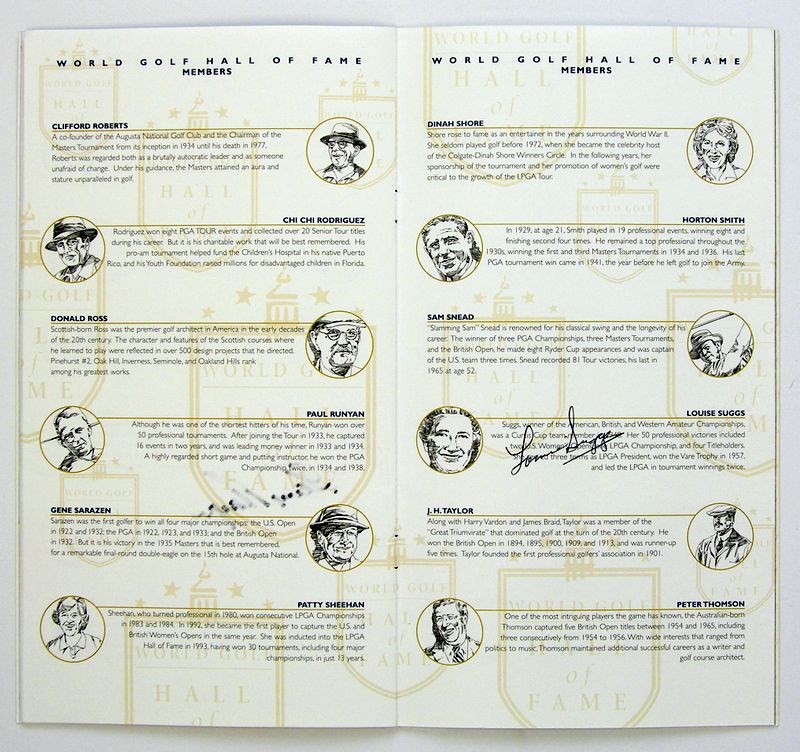 WORLD GOLF HALL OF FAME
MEMBERS
CLIFFORD ROBERTS
A co-founder of the Augusta National Golf Club and the Chairman of the
Masters Tournament from its inception in 1934 until his death in 1977,
Roberts was regarded both as a brutally autocratic leader and as someone
unafraid of change. Under his guidance, the Masters attained an aura and
stature unparalleled in golf.
CHI CHI RODRIGUEZ
Rodriguez won eight PGA TOUR events and collected over 20 Senior Tour titles
during his career. But it is his charitable work that will be best remembered. His
pro-am tournament helped fund the Children's Hospital in his native Puerto
Rico, and his Youth Foundation raised millions for disadvantaged children in Florida.
DONALD ROSS
Scottish-born Ross was the premier golf architect in America in the early decades
of the 20th century. The character and features of the Scottish courses where
he learned to play were reflected in over 500 design projects that he directed.
Pinehurst #2, Oak Hill, Inverness, Seminole, and Oakland Hills rank
among his greatest works.
PAUL RUNYAN
Although he was one of the shortest hitters of his time, Runyan won over
50 professional tournaments. After joining the Tour in 1933, he captured
16 events in two years, and was leading money winner in 1933 and 1934.
A highly regarded short game and putting instructor, he won the PGA
Championship twice, in 1934 and 1938.
GENE SARAZEN
Sarazen was the first golfer to win all four major championships: the U.S. Open
in 1922 and 1932; the PGA in 1922, 1923, and 1933; and the British Open
in 1932. But it is his victory in the 1935 Masters that is best remembered,
for a remarkable final double-eagle on the 15th hole at Augusta National.
PATTY SHEEHAN
Sheehan, who turned professional in 1980, won consecutive LPGA Championships
in 1983 and 1984. In 1992, she became the first player to capture the U.S. and
British Women's Opens in the same year. She was inducted into the LPGA
Hall of Fame in 1993, having won 30 tournaments, including four major
championships, in just 13 years.
WORLD GOLF HALL OF FAME
MEMBERS
DINAH SHORE
Shore rose to fame as an entertainer in the years surrounding World War II.
She seldom played golf before 1972, when she became the celebrity host
of the Colgate-Dinah Shore Winners Circle. In the following years, her
sponsorship of the tournament and her promotion of women's golf were
critical to the growth of the LPGA Tour.
HORTON SMITH
In 1929, at age 21, Smith played in 19 professional events, winning eight and
finishing second four times. He remained a top professional throughout the
1930s, winning the first and third Masters Tournaments in 1934 and 1936. His last
PGA tournament win came in 1941, the year before he left golf to join the Army.
SAM SNEAD
"Slamming Sam" Snead is renowned for his classical swing and the longevity of his
career. The winner of three PGA Championships, three Masters Tournaments,
and the British Open, he made eight Ryder Cup appearances and was captain
of the U.S. team three times. Snead recorded 81 Tour victories, his last in
1965 at age 52.
LOUISE SUGGS
Suggs, winner of the American, British, and Western Amateur Championships,
was a Curtis Cup team member. Her 50 professional victories included
two U.S. Women's Opens, LPGA Championship, and four Titleholders.
three terms as LPGA President, won the Vare Trophy in 1957,
and led the LPGA in tournament winnings twice.
Louise Suggs
J. H. TAYLOR
Along with Harry Vardon and James Braid, Taylor was a member of the
"Great Triumvirate" that dominated golf at the turn of the 20th century. He
won the British Open in 1894, 1895, 1900, 1909, and 1913, and was runner-up
five times. Taylor founded the first professional golfers' association in 1901.
PETER THOMSON
One of the most intriguing players the game has known, the Australian-born
Thomson captured five British Open titles between 1954 and 1965, including
three consecutively from 1954 to 1956. With wide interests that ranged from
politics to music, Thomson maintained additional successful careers as a writer and
golf course architect.